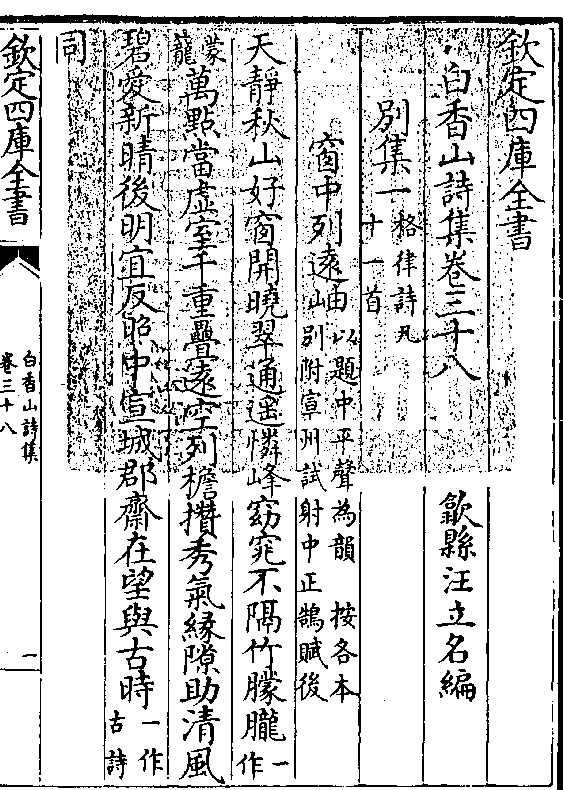 欽定四庫全書
白香山詩集卷三十八
歙縣汪立名編
別集一格律詩凡十一首
窗中列遠岫以題中平聲為韻　按各本別附宣州試射中正鵠賦後
天靜秋山好窗開曉翠通遙憐峰窈窕不隔竹朦朧一作
蒙蘢萬點當虛室千重疊遠空列檐攢秀氣緣隙助清風
碧愛新晴後明宜反照中宣城郡齋在望與古時一作古詩
同
欽定四庫全書
白香山詩集
卷三十八
一